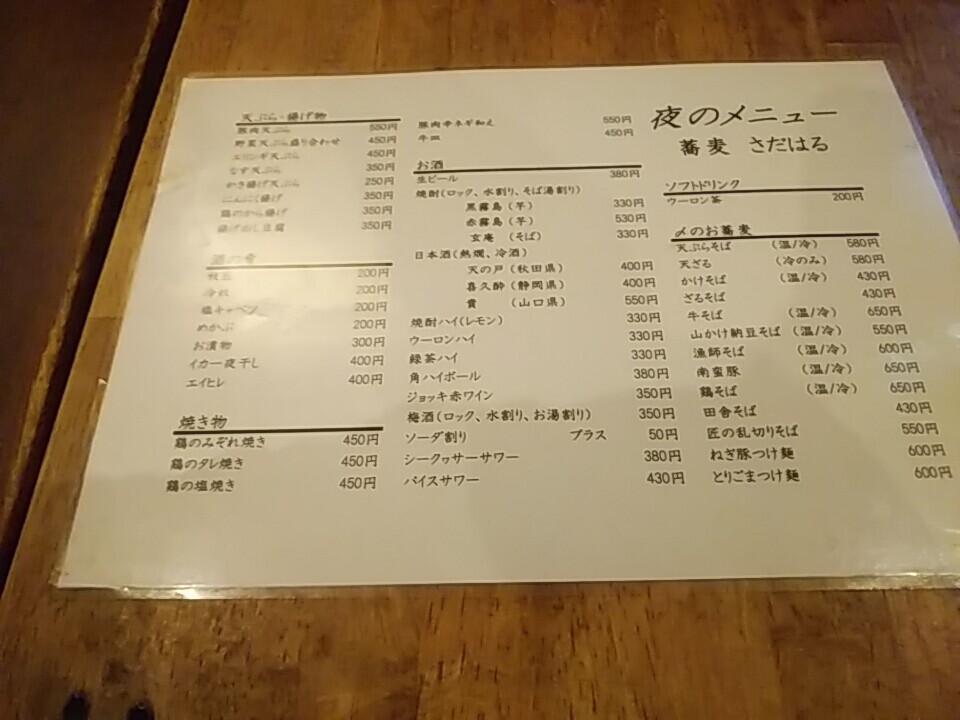 夜のメニュー
蕎麦 さだはる
ソフトドリンク
ウーロン茶 200円
〆のお蕎麦
天ぷらそば (温/冷) 580円
天ざる (冷のみ) 580円
かけそば (温/冷) 430円
ざるそば 430円
牛そば (温/冷) 650円
山かけ納豆そば (温/冷) 550円
漁師そば (温/冷) 600円
南蛮豚 (温/冷) 650円
鶏そば (温/冷) 650円
田舎そば 430円
匠の乱切りそば 550円
ねぎ豚つけ麺 600円
とりごまつけ麺 600円
豚肉辛ネギ和え 550円
牛皿 450円
お酒
生ビール 380円
焼酎(ロック、水割り、そば湯割り)
黒霧島(芋) 330円
赤霧島(芋) 530円
玄庵 (そば) 330円
日本酒(熱燗、冷酒)
天の戸(秋田県) 400円
喜久酔(静岡県) 400円
貴 (山口県) 550円
焼酎ハイ(レモン) 330円
ウーロンハイ 330円
緑茶ハイ 330円
角ハイボール 380円
ジョッキ赤ワイン 350円
梅酒(ロック、水割り、お湯割り) 350円
ソーダ割り プラス 50円
シークヮサーサワー 380円
バイスサワー 430円
天ぷら・揚げ物
豚肉天ぷら 550円
野菜天ぷら盛り合わせ 450円
エリンギ天ぷら 450円
なす天ぷら 350円
かき揚げ天ぷら 250円
にんにく揚げ 350円
鶏のから揚げ 350円
揚げ出し豆腐 350円
酒の肴
枝豆 200円
冷奴 200円
塩キャベツ 200円
めかぶ 200円
お漬物 300円
イカ一夜干し 400円
エイヒレ 400円
焼き物
鶏のみぞれ焼き 450円
鶏のタレ焼き 450円
鶏の塩焼き 450円